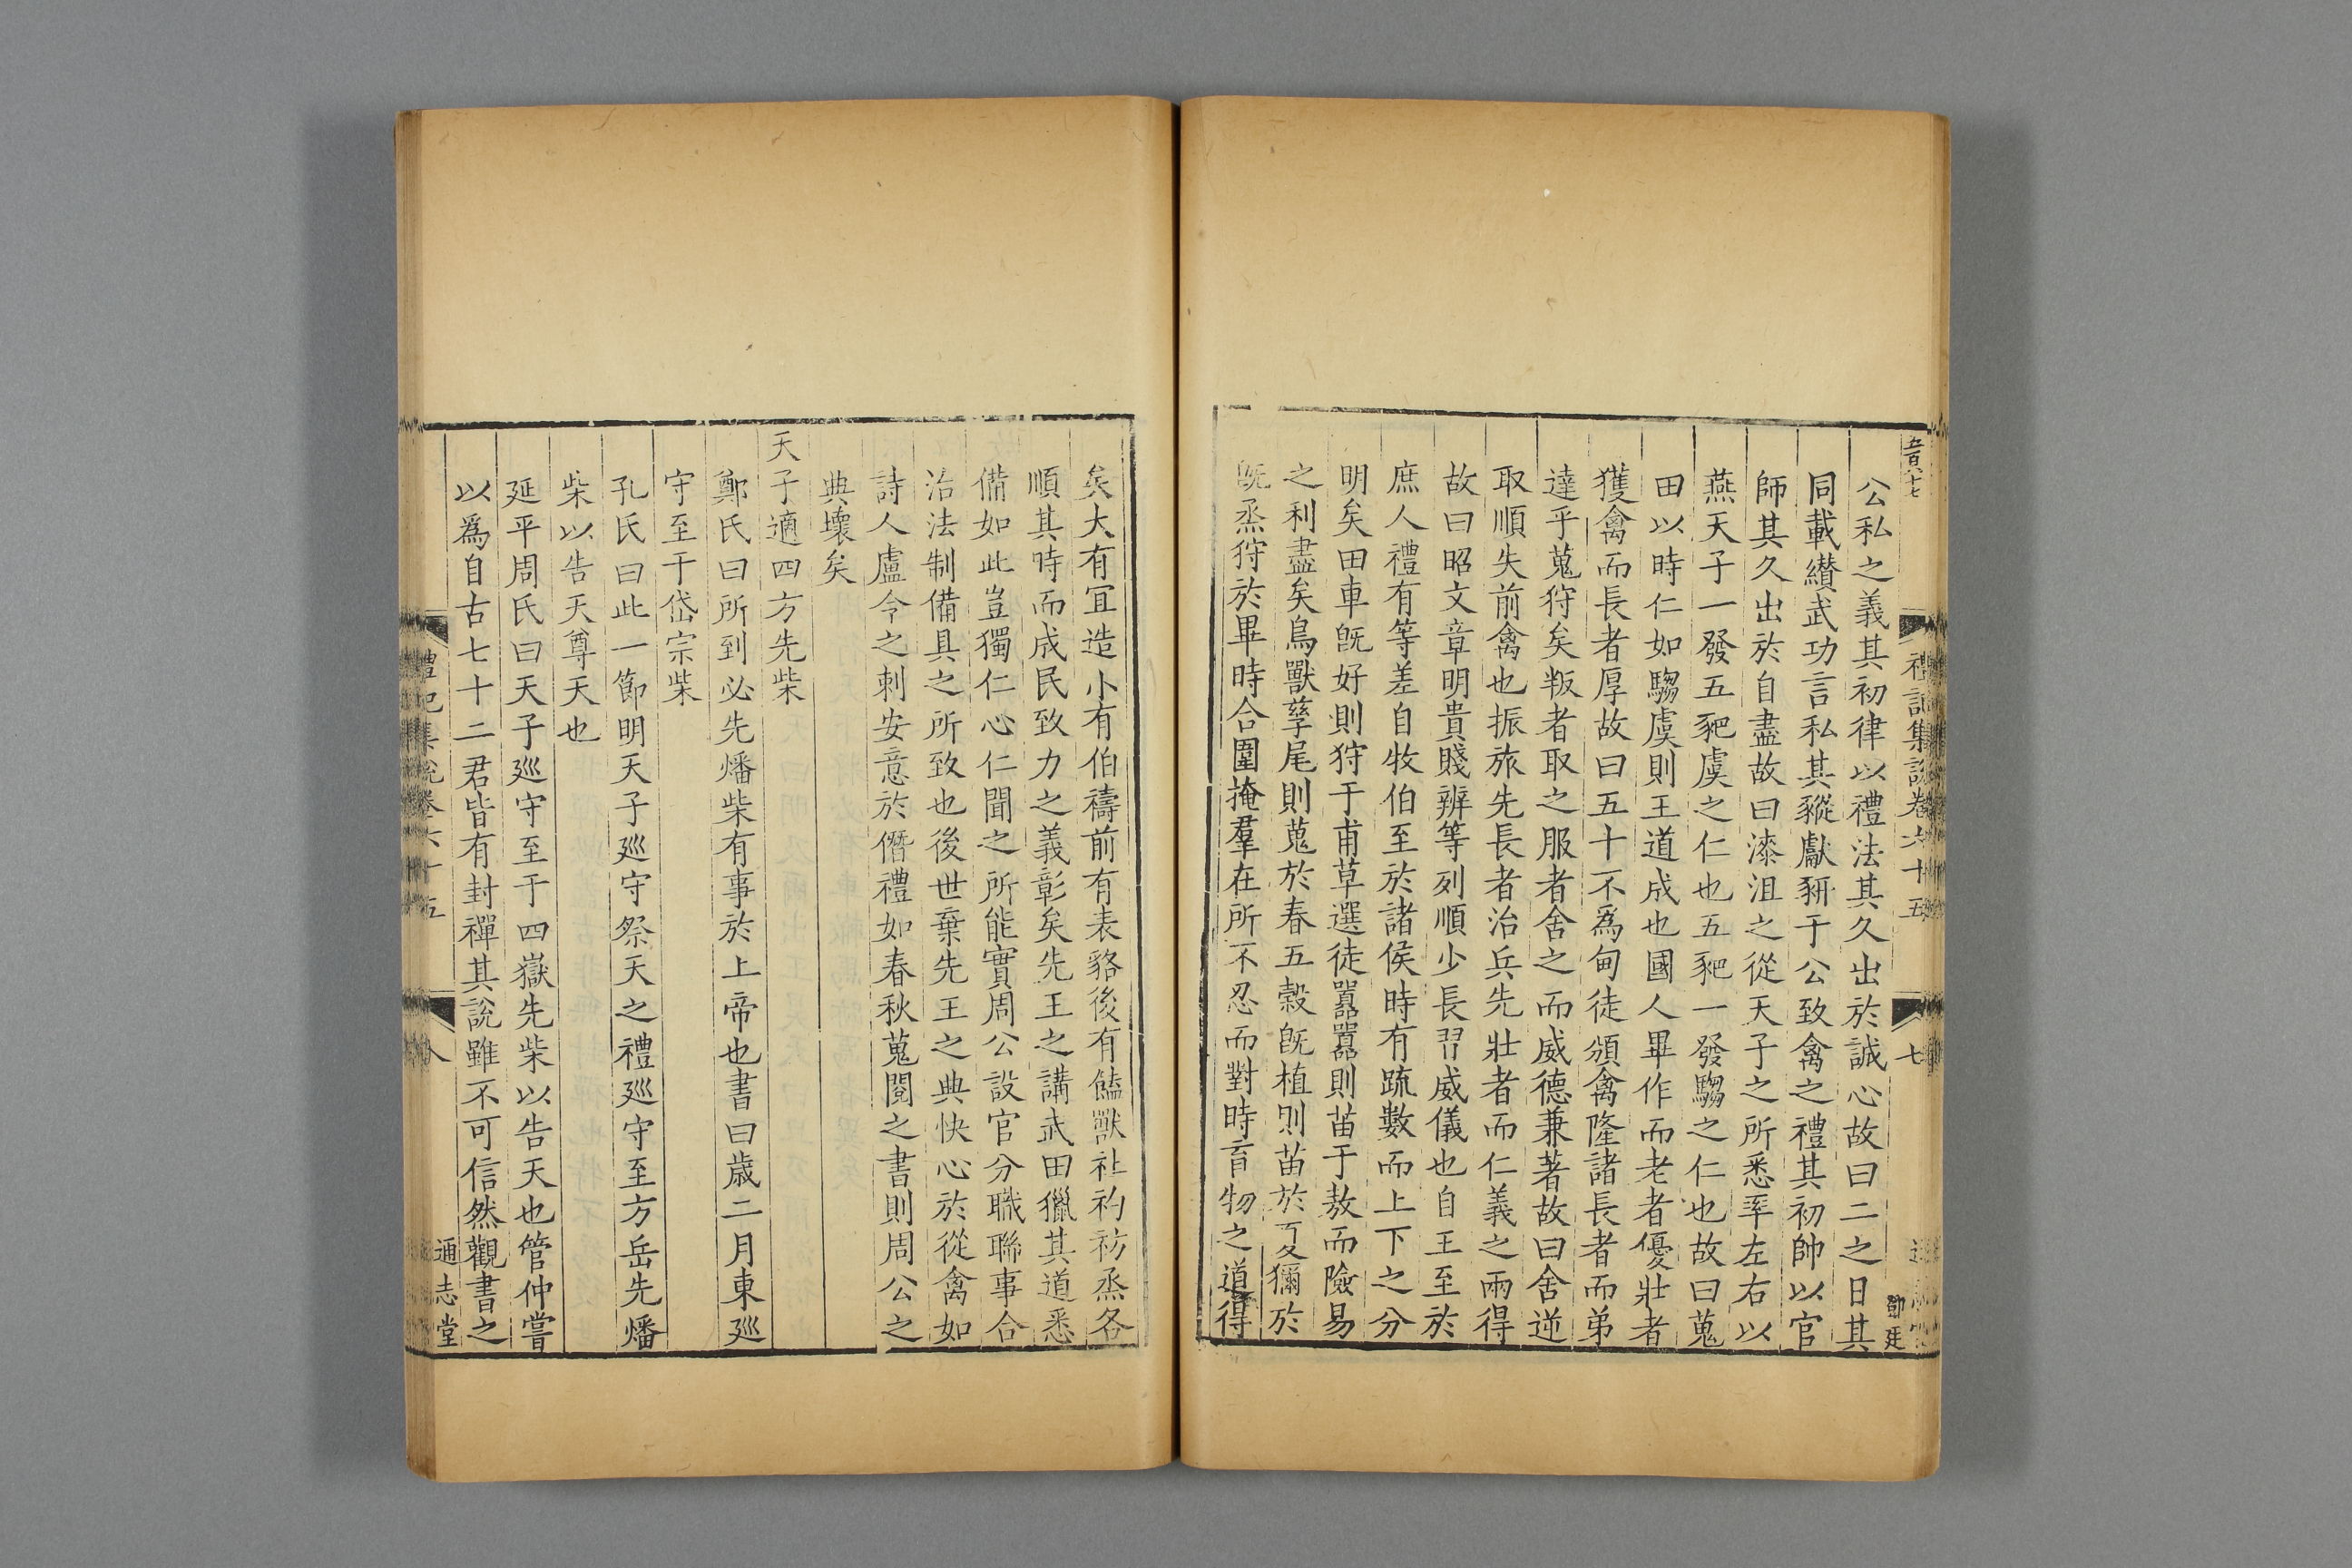 公私之義其初律以禮法其久出於誠心故曰二之日其
同載纘武功言私其豵獻豜于公致禽之禮其初帥以官
師其久出於自盡故曰漆沮之從天子之所悉率左右以
燕天子一發五豝虞之仁也五豝一發騶之仁也故曰蒐
田以時仁如騶虞則王道成也國人畢作而老者優壯者
獲禽而長者厚故曰五十不爲甸徒頒禽隆諸長者而弟
達乎蒐狩矣叛者取之服者舍之而威德兼著故曰舍逆
取順失前禽也振旅先長者治兵先壯者而仁義之兩得
故曰昭文章明貴賤辨等列順少長習威儀也自王至於
庶人禮有等差自牧伯至於諸侯時有疏數而上下之分
明矣田車旣好則狩于甫草選徒囂囂則苗于敖而險易
之利盡矣鳥獸孳尾則蒐於春五穀旣植則苗於夏獮於
旣烝狩於畢時合圍掩羣在所不忍而對時育物之道得
禮記集說卷六十五
七
矣大有冝造小有伯禱前有表貉後有饁獸社礿祊烝各
順其時而成民致力之義彰矣先王之講武田獵其道悉
備如此豈獨仁心仁聞之所能實周公設官分職聯事合
治法制備具之所致也後世棄先王之典快心於從禽如
詩人盧令之刺安意於僭禮如春秋蒐閱之書則周公之
典壞矣
天子適四方先柴
鄭氏曰所到必先燔柴有事於上帝也書曰歲二月東廵
守至于岱宗柴
孔氏曰此一節明天子廵守祭天之禮廵守至方岳先燔
柴以告天尊天也
延平周氏曰天子廵守至于四嶽先柴以告天也管仲嘗
以爲自古七十二君皆有封禪其說雖不可信然觀書之
禮記集說卷六十五
八
通志堂